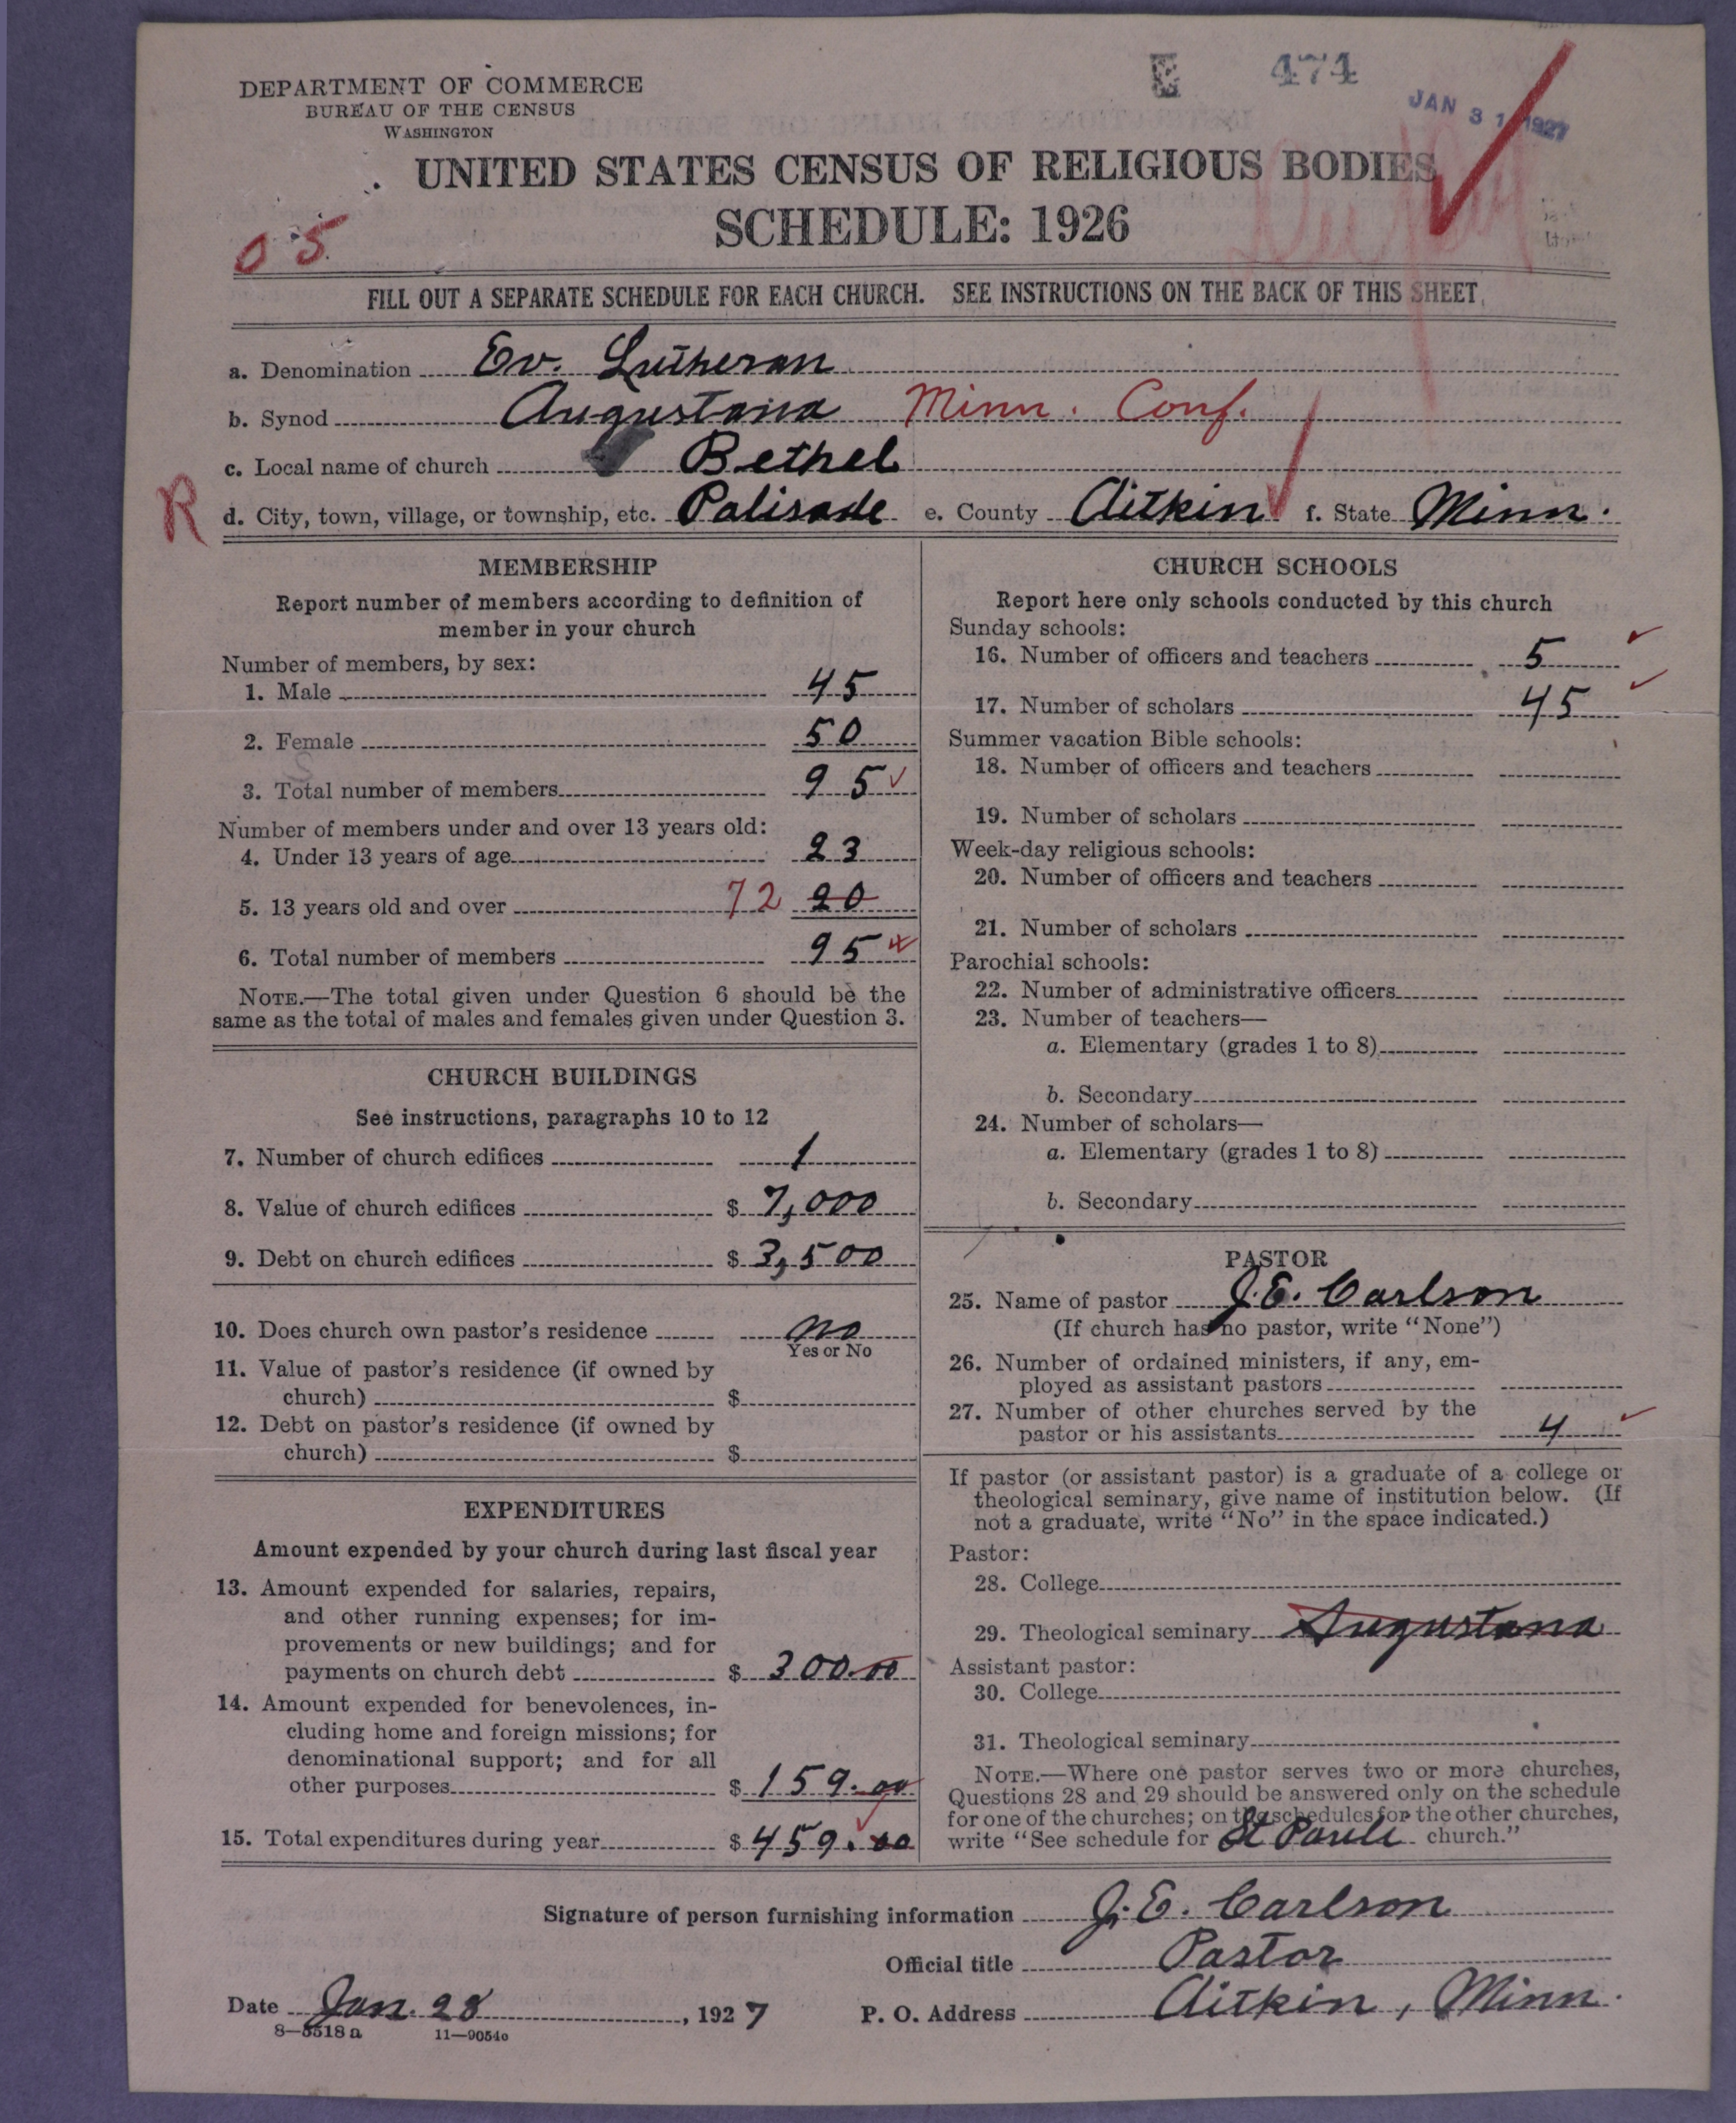 DEPARTMENT OF COMMERCE
BUREAU OF THE CENSUS
WASHINGTON
474
JAN 31 1927
UNITED STATES CENSUS OF RELIGIOUS BODIES
SCHEDULE: 1926
05
FILL OUT A SEPARATE SCHEDULE FOR EACH CHURCH. SEE INSTRUCTIONS ON THE BACK OF THIS SHEET
a. Denomination Ev. Lutheran
b. Synod Augustana Minn. Conf.
c. Local name of church Bethel
R
d. City, town, village, or township, etc. Palisade e. County Aitkin f. State Minn.
MEMBERSHIP
Report number of members according to definition of
member in your church
Number of members, by sex:
1. Male 45
2. Female 50
3. Total number of members 95
Number of members under and over 13 years old:
4. Under 13 years of age 23
5. 13 years old and over 72 20
6. Total number of members 95
NOTE.—The total given under Question 6 should be the
same as the total of males and females given under Question 3.
CHURCH BUILDINGS
See instructions, paragraphs 10 to 12
7. Number of church edifices 1
8. Value of church edifices $ 7,000
9. Debt on church edifices $ 3,500
10. Does church own pastor's residence no
Yes or No
11. Value of pastor's residence (if owned by
church) $
12. Debt on pastor's residence (if owned by
church) $
EXPENDITURES
Amount expended by your church during last fiscal year
13. Amount expended for salaries, repairs,
and other running expenses; for im-
provements or new buildings; and for
payments on church debt $ 300.00
14. Amount expended for benevolences, in-
cluding home and foreign missions; for
denominational support; and for all
other purposes $ 159.00
15. Total expenditures during year $ 459.00
CHURCH SCHOOLS
Report here only schools conducted by this church
Sunday schools:
16. Number of officers and teachers 5
17. Number of scholars 45
Summer vacation Bible schools:
18. Number of officers and teachers
19. Number of scholars
Week-day religious schools:
20. Number of officers and teachers
21. Number of scholars
Parochial schools:
22. Number of administrative officers
23. Number of teachers—
a. Elementary (grades 1 to 8)
b. Secondary
24. Number of scholars—
a. Elementary (grades 1 to 8)
b. Secondary
PASTOR
25. Name of pastor J. E. Carlson
(If church has no pastor, write "None")
26. Number of ordained ministers, if any, em-
ployed as assistant pastors
27. Number of other churches served by the
pastor or his assistants 4
If pastor (or assistant pastor) is a graduate of a college or
theological seminary, give name of institution below. (If
not a graduate, write "No" in the space indicated.)
Pastor:
28. College
29. Theological seminary Augustana
Assistant pastor:
30. College
31. Theological seminary
NOTE.—Where one pastor serves two or more churches,
Questions 28 and 29 should be answered only on the schedule
for one of the churches; on the schedules for the other churches,
write "See schedule for St Pauli church."
Signature of person furnishing information J. E. Carlson
Official title Pastor
Date Jan. 28, 1927 P. O. Address Aitkin, Minn.
8—5518a 11—9054c